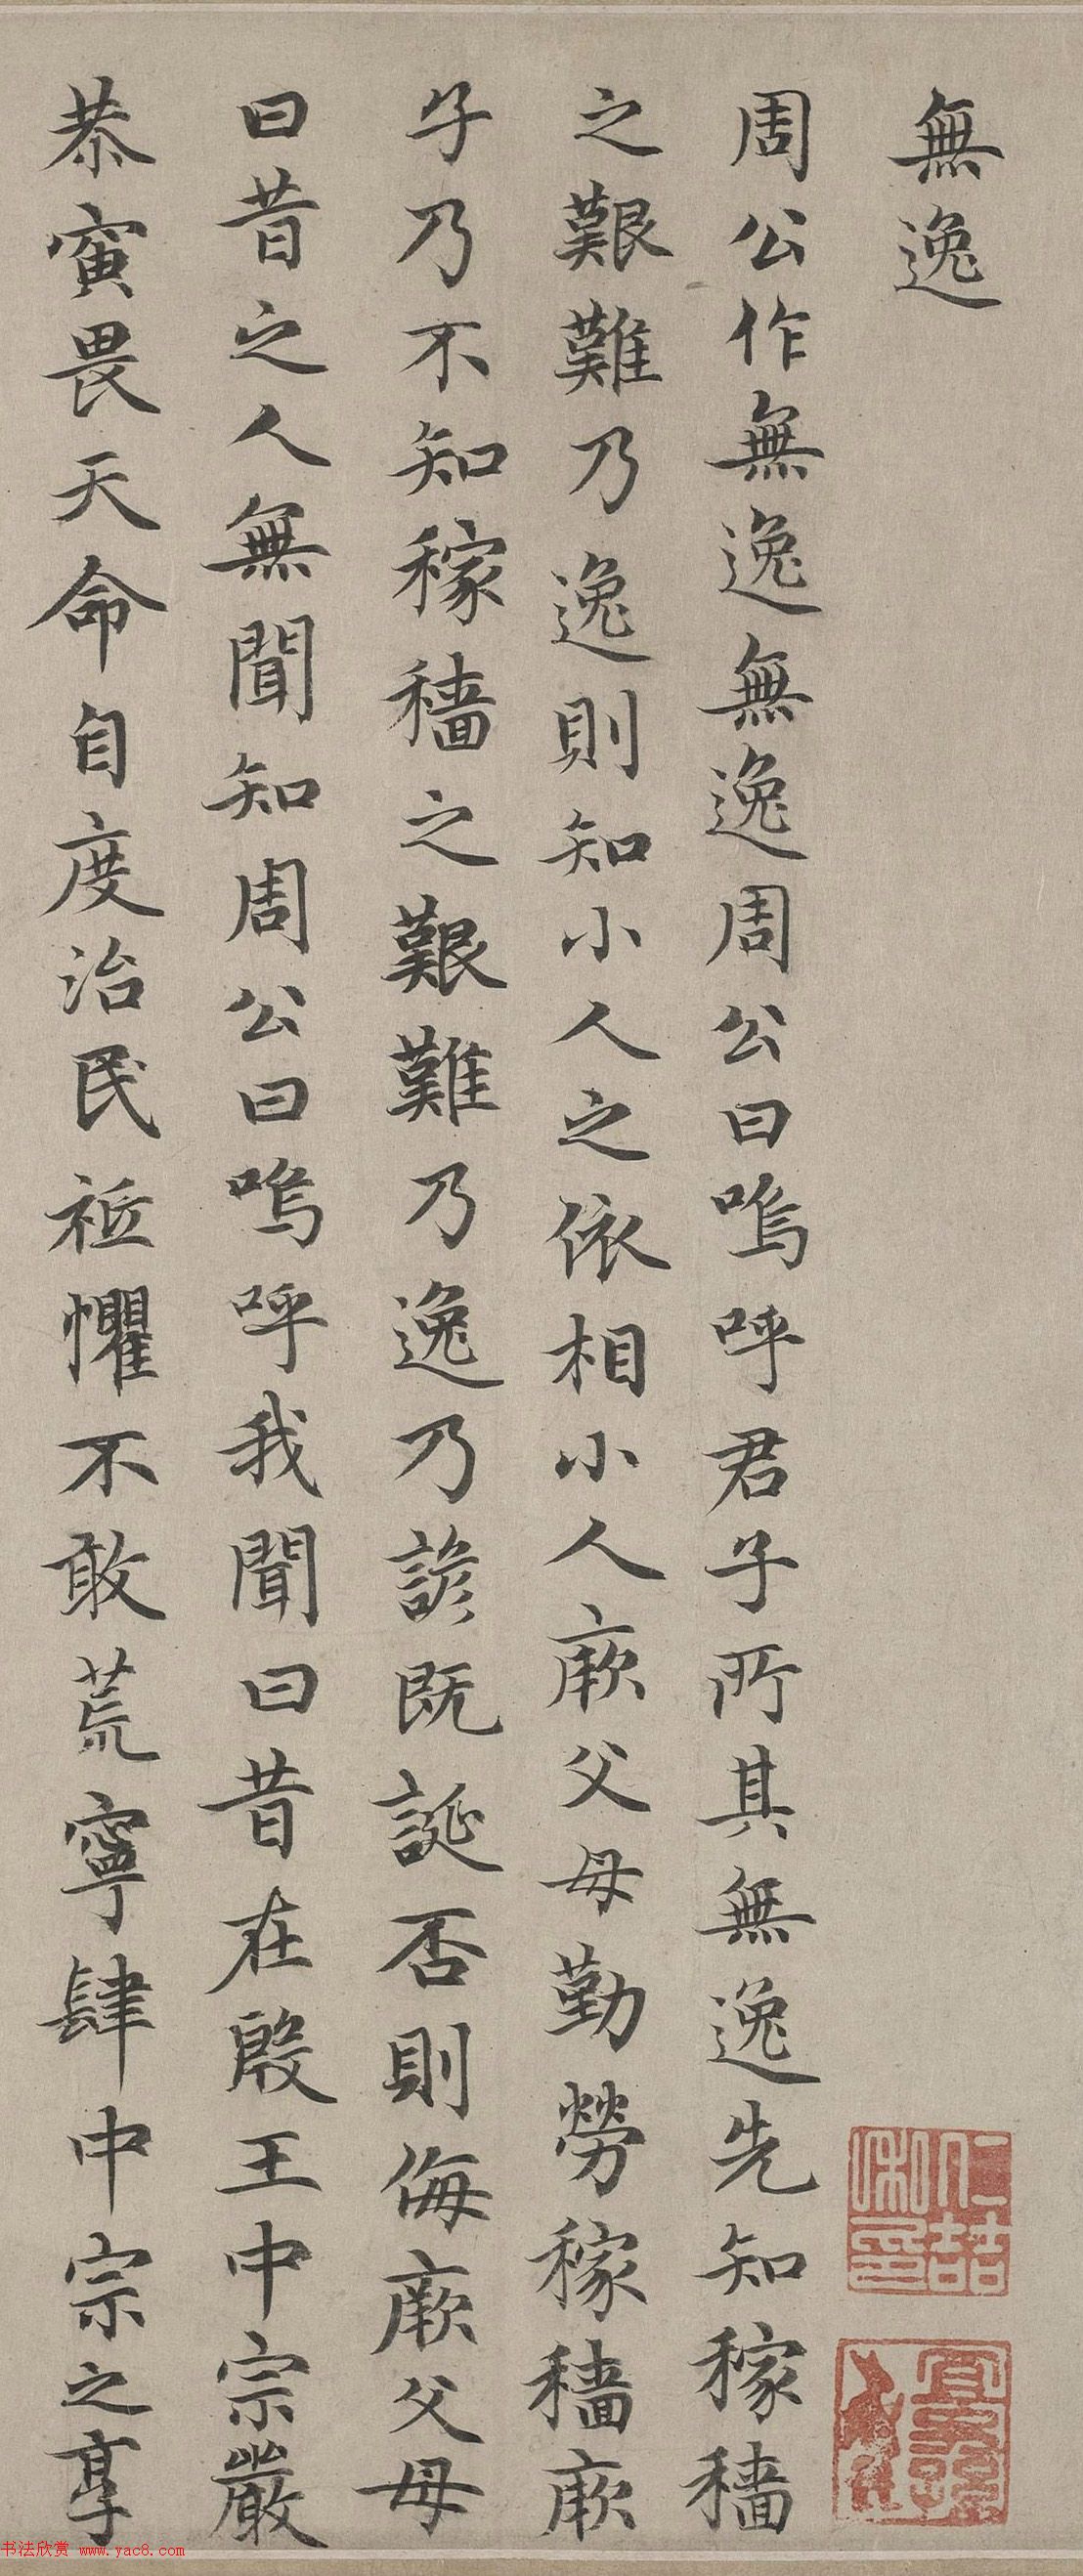 無逸
周公作無逸無逸周公曰嗚呼君子所其無逸先知稼穡
之艱難乃逸則知小人之依相小人厥父母勤勞稼穡厥
子乃不知稼穡之艱難乃逸乃諺既誕否則侮厥父母
曰昔之人無聞知周公曰嗚呼我聞曰昔在殷王中宗嚴
恭寅畏天命自度治民祗懼不敢荒寧肆中宗之享
书法欣赏 www.yac8.com